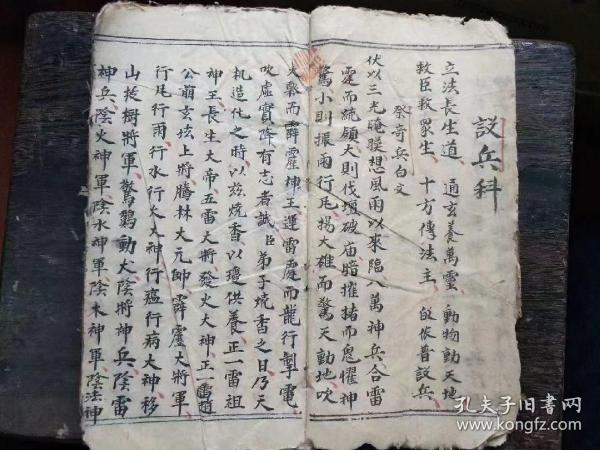 設兵科
立法長生道 通玄養萬靈 動物動天地
救臣救眾生 十方傳法主 皈依普設兵
祭奇兵白文
伏以三光腌膜想風雨以來臨八萬神兵合雷
霆而統領大則伐壇破庙暗摧揍而鬼懼神
驚小則振雨行尾揚大碓而驚天動地吹
大聲而霹靂神王運雷霆而龍行掣電
吹虛實降有志者誠臣弟子燒香之日乃天
机造化之時以茲燒香以壇供養正一雷祖
神王長生大帝五雷大將發火大神正一雷
公崩玄垓上將騰林大元帥霹靂大將軍
行尾行雨行水行火大神行瘟行病大神移
山拔樹將軍驚鷄動犬陰將神兵陰雷
神兵陰火神軍陰水神軍陰木神軍陰法神
孔夫子旧书网
www.kongfz.com